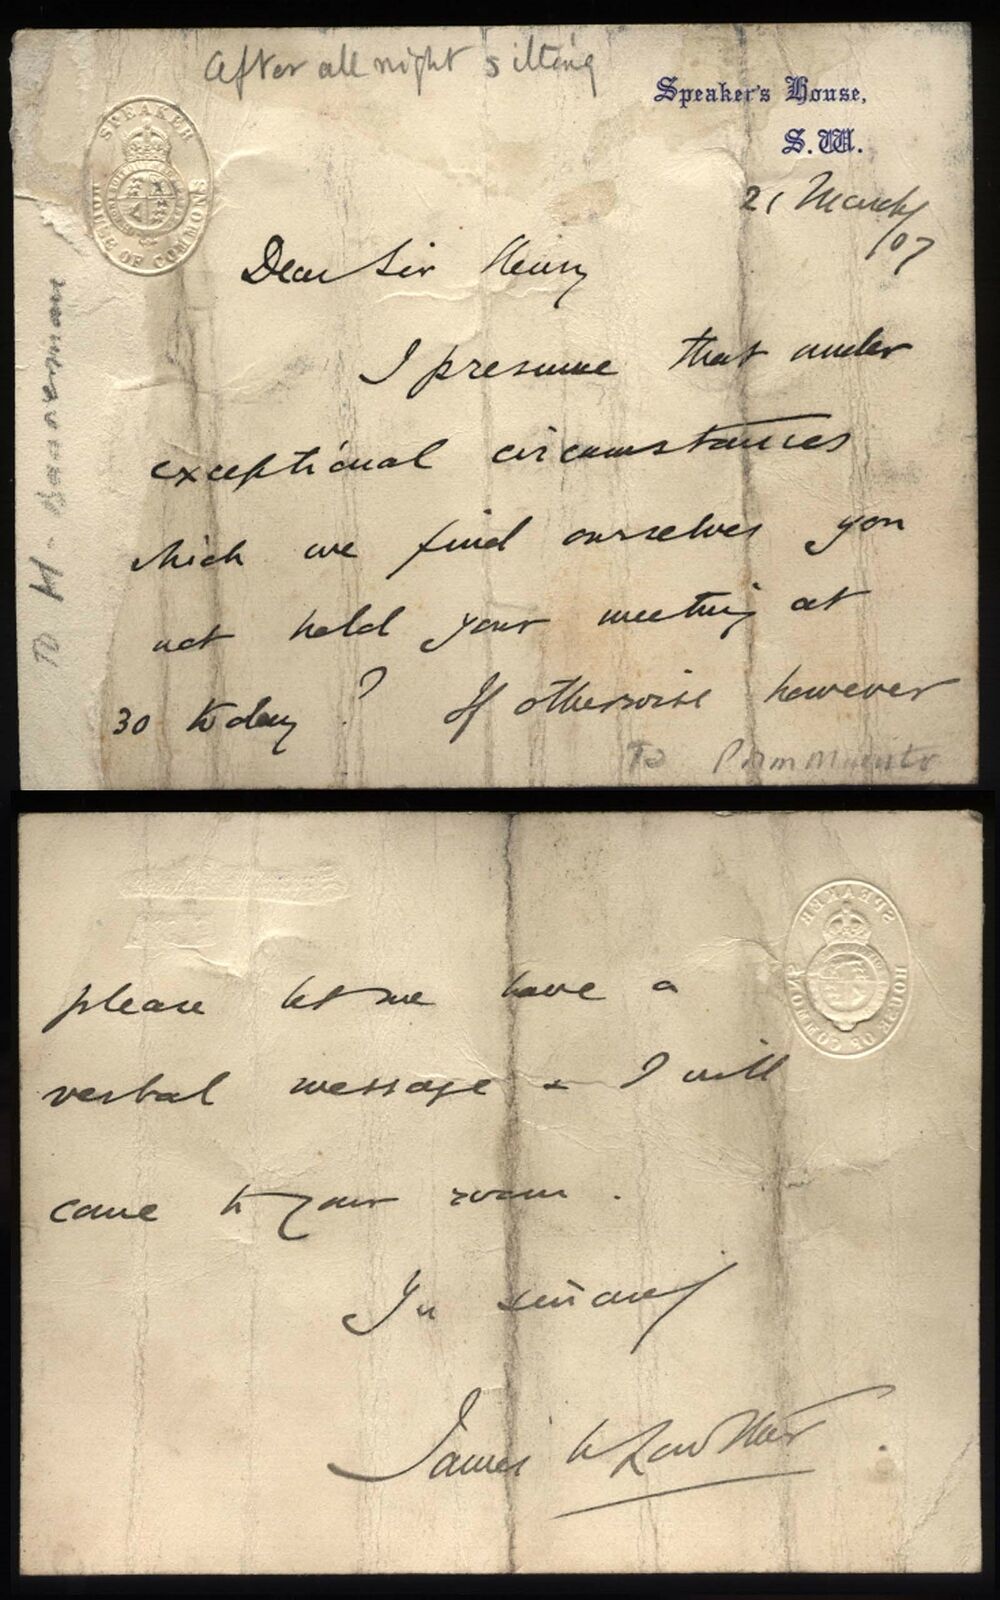 After all night sitting
Speaker's House,
S.W.
SPEAKER
HOUSE OF COMMONS
21 March
/07
Dear Sir Henry
I presume that under
exceptional circumstances
which we find ourselves you
not hold your meeting at
30 today? If otherwise however
To Prim Minister
To H- Bannerman
please let me have a
verbal message & I will
come to your room.
Yrs sincerely
James W Lowther
SPEAKER
HOUSE OF COMMONS